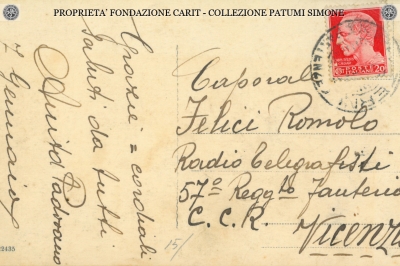 PROPRIETA' FONDAZIONE CARIT - COLLEZIONE PATUMI SIMONE
Grazie = cordiali
saluti da tutti
Anita Padovano
7 Gennaio
Caporale
Felici Romolo
Radio Telegrafisti
57º Reggto Fanteria
C. C. R.
Vicenza
20
15/